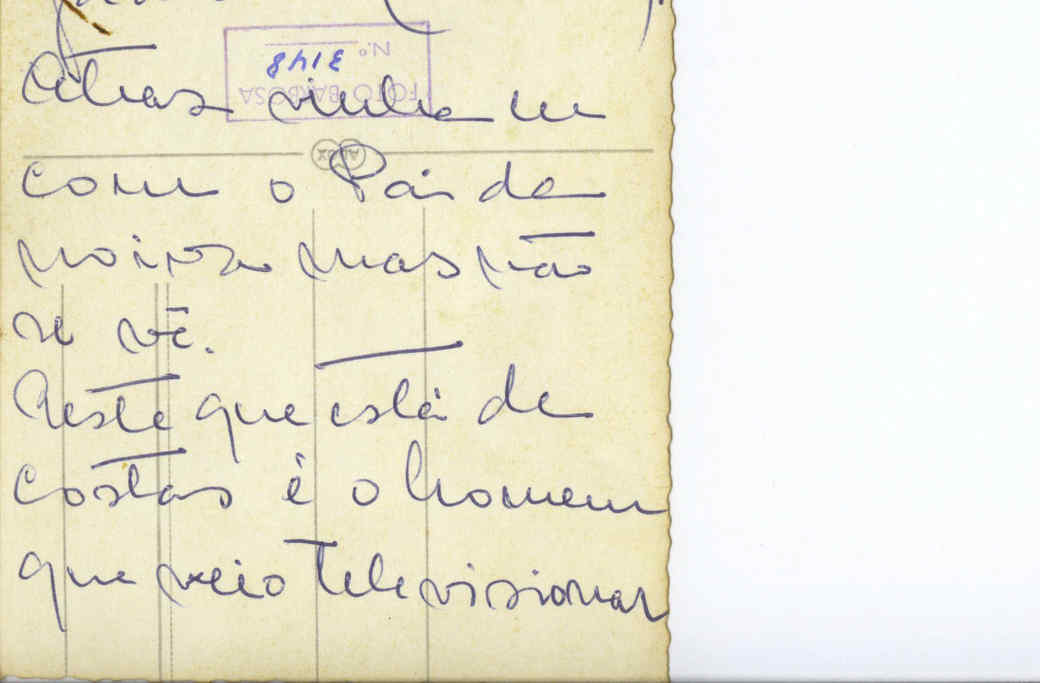 Atraz vinha eu
com o Pai da
noiva mas não
se vê.
Neste que está de
costas é o homem
que veio televisionar
FOTO BARBOSA
N.º 3148